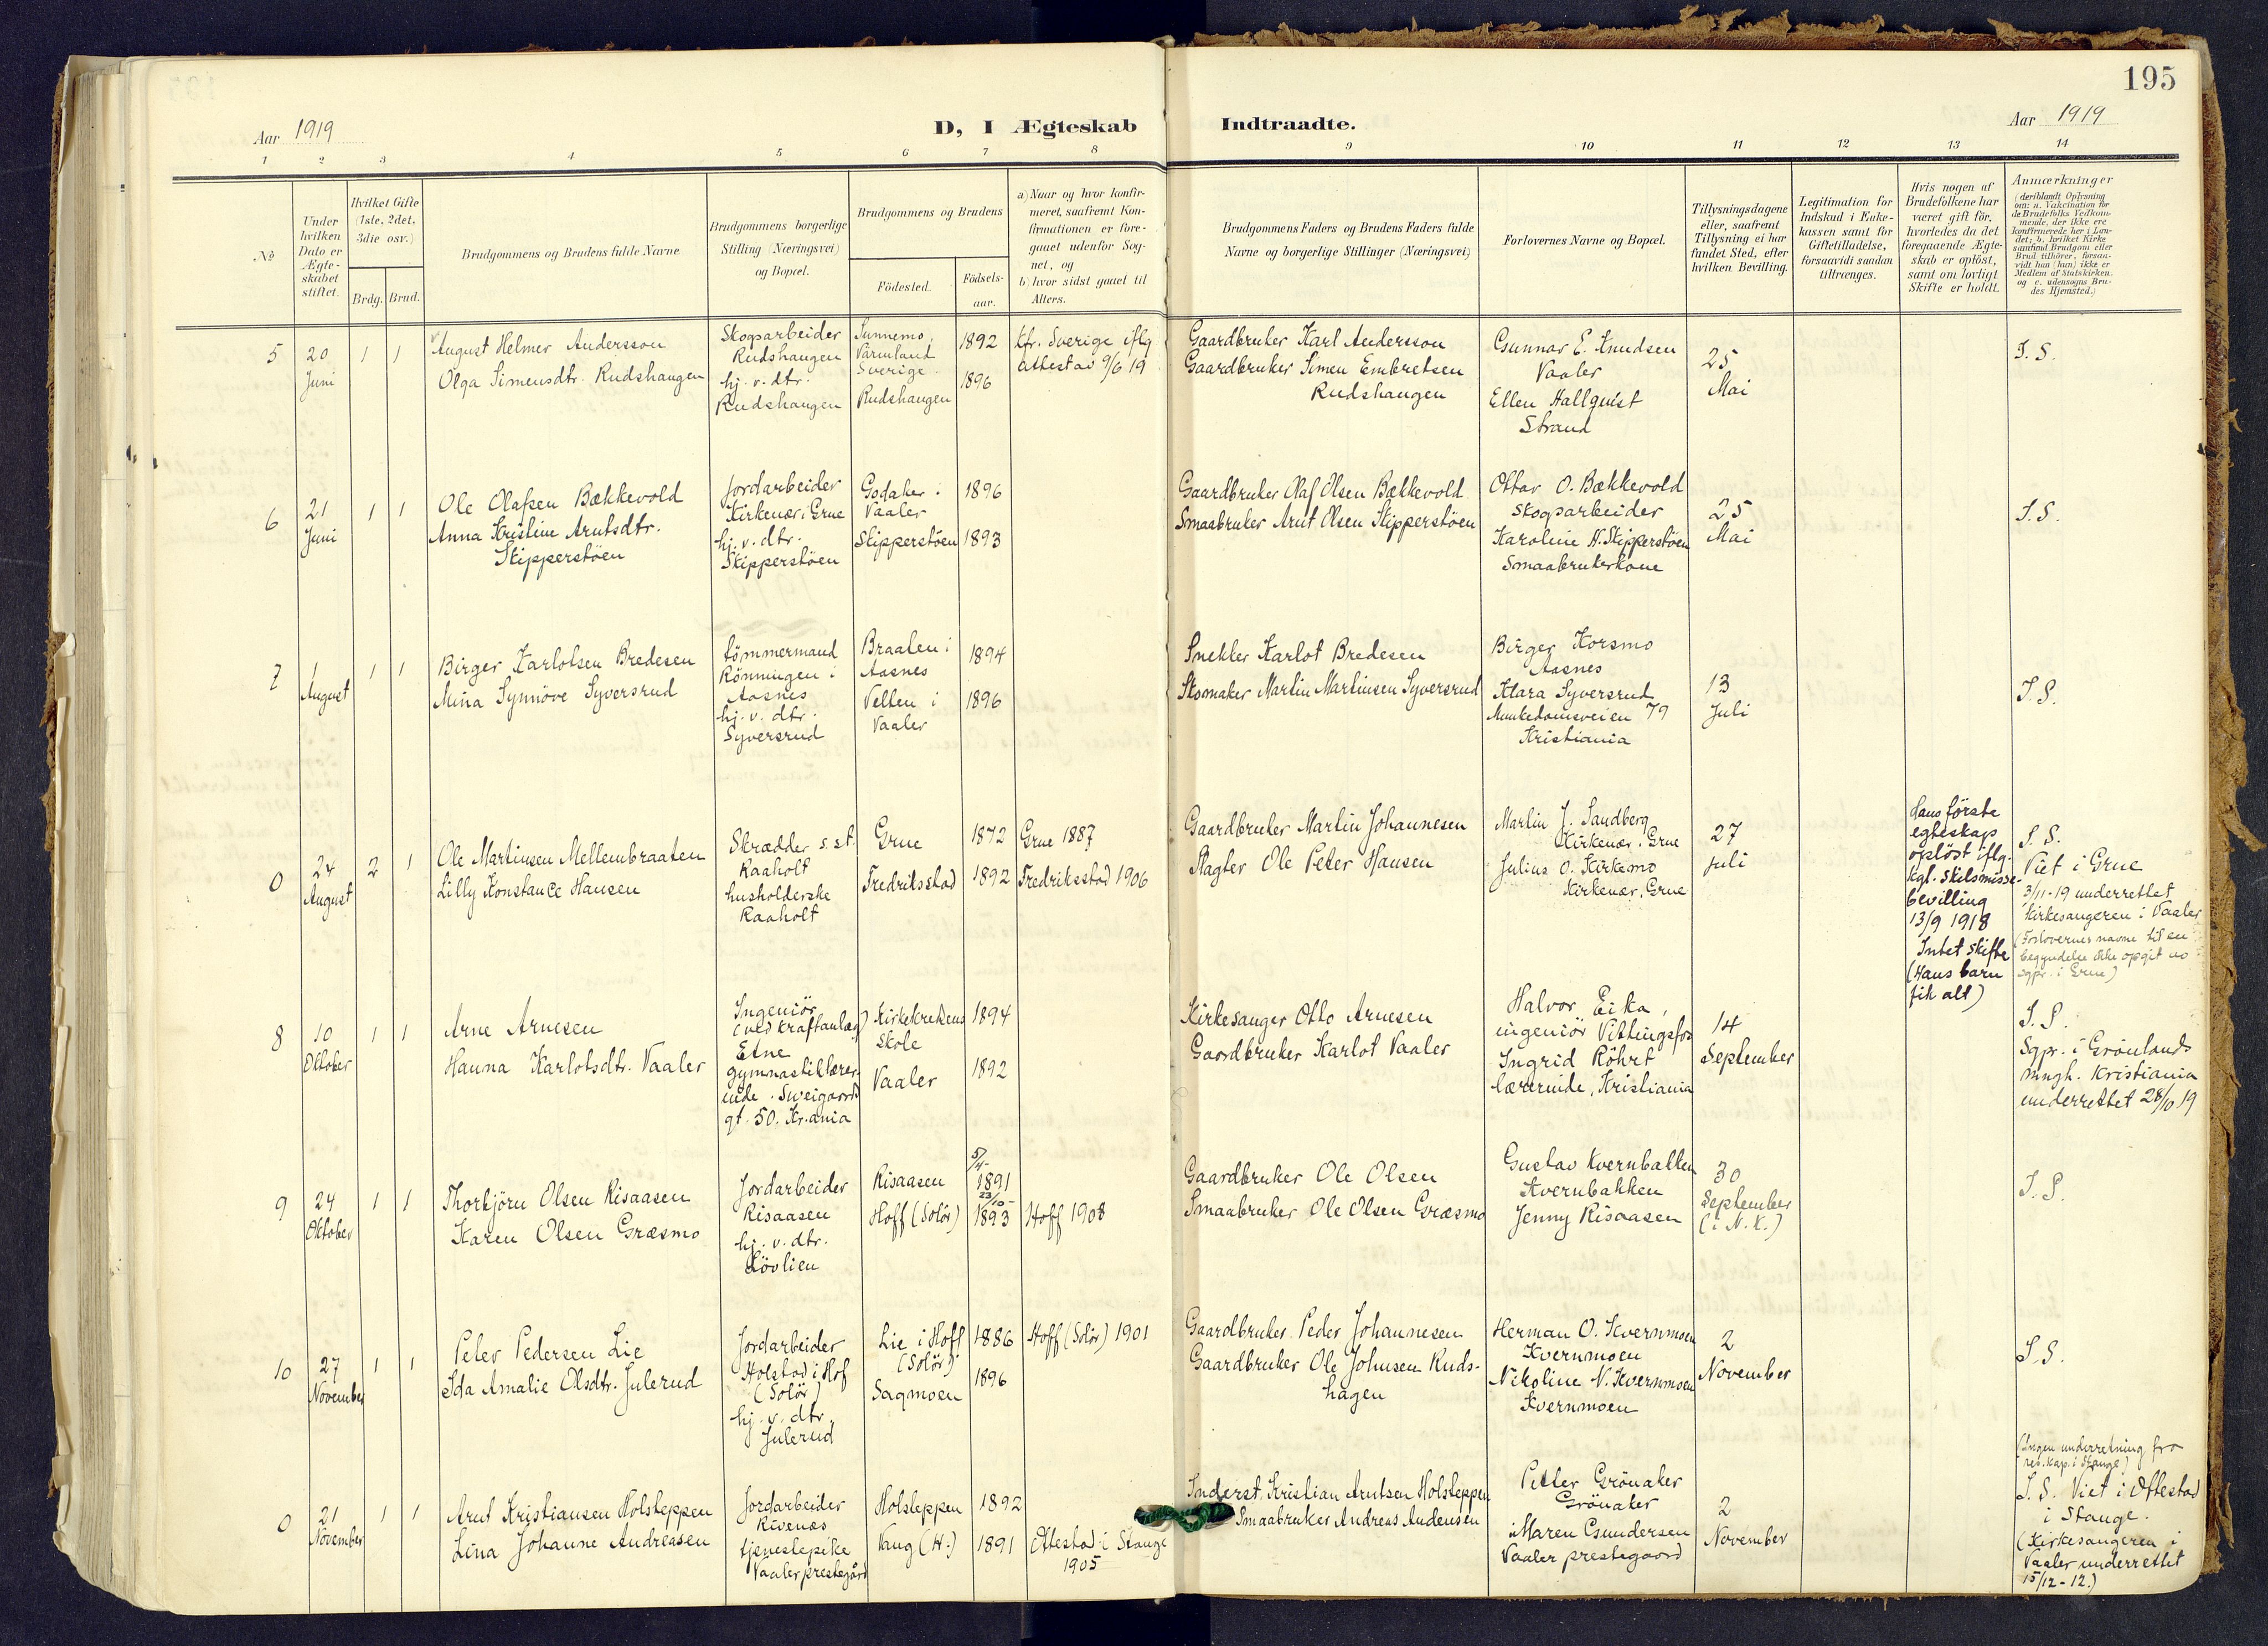 195
Aar 1919
D, I Ægteskab Indtraadte.
Aar 1919
1 2 3 4 5 6 7 8 9 10 11 12 13 14
No
Under
hvilken
Dato er
Ægte-
skabet
stiftet.
Hvilket Gifte
(1ste, 2det,
3die osv.)
Brdg. Brud.
Brudgommens og Brudens fulde Navne
Brudgommens borgerlige
Stilling (Næringsvei)
og Bopæl.
Brudgommens og Brudens
Födested.
Födsels-
aar.
a) Naar og hvor konfir-
meret, saafremt Kon-
firmationen er fore-
gaaet udenfor Sog-
net, og
b) hvor sidst gaaet til
Alters.
Brudgommens Faders og Brudens Faders fulde
Navne og borgerlige Stillinger (Næringsvei)
Forlovernes Navne og Bopæl.
Tillysningsdagene
eller, saafremt
Tillysning ei har
fundet Sted, efter
hvilken Bevilling.
Legitimation for
Indskud i Enke-
kassen samt for
Giftetilladelse,
forsaavidt saadan
tiltrænges.
Hvis nogen af
Brudefolkene har
været gift för,
hvorledes da det
foregaaende Ægte-
skab er oplöst,
samt om lovligt
Skifte er holdt.
Anmærkninger
(deriblandt Oplysning
om: a. Vakcination for
de Brudefolks Vedkom-
mende, der ikke ere
konfirmerede her i Lan-
det; b. hvilket Kirke
samfund Brudgom eller
Brud tilhörer, forsaa-
vidt han (hun) ikke er
Medlem af Statskirken.
og c. udensogns Bru-
des Hjemsted.)
5
20
Juni
1 1
August Helmer Andersson
Olga Simensdtr. Rudshaugen
Skogsarbeider
Rudshaugen
hj. v. dtr.
Rudshaugen
Sunnemo,
Värmland
Sverige.
Rudshaugen
1892
1896
Kfr. Sverige iflg
attestav 9/6 19
Gaardbruker Karl Andersson
Gaardbruker Simen Embretsen
Rudshaugen
Gunnar E. Knudsen
Vaaler
Ellen Hallquist
Strand
25
Mai
I. S.
6
21
Juni
1 1
Ole Olafsen Bækkevold
Anna Kristine Arntsdtr.
Skipperstöen
Jordarbeider
Kirkenær i Grue
hj. v. dtr.
Skipperstöen
Godaker i
Vaaler
Skipperstöen
1896
1893
Gaardbruker Olaf Olsen Bækkevold
Smaabruker Arnt Olsen Skipperstöen
Ottar O. Bækkevold
Skogsarbeider
Karoline H. Skipperstöen
Smaabrukerkone
25
Mai
I. S.
7
1
August
1 1
Birger Karlotsen Bredesen
Mina Synnöve Syversrud
tömmermand
Rönningen i
Aasnes
hj. v. dtr.
Syversrud
Braaten i
Aasnes
Velten i
Vaaler
1894
1896
Snekker Karlot Bredesen
Skomaker Martin Martinsen Syversrud
Birger Korsmo
Aasnes
Klara Syversrud
Munkedamsveien 79
Kristiania
13
Juli
I. S.
0
24
August
2 1
Ole Martinsen Mellembraaten
Lilly Konstance Hansen
Skrædder s. st.
Raaholt
husholderske
Raaholt
Grue
Fredriksstad
1872
1892
Grue 1887
Fredriksstad 1906
Gaardbruker Martin Johannesen
Slagter Ole Peter Hansen
Martin J. Sandberg
Kirkenær, Grue
Julius O. Kirkemo
Kirkenær, Grue
27
juli
Hans förste
egteskap
oplöst iflg.
kgl. skilsmisse-
bevilling
13/9 1918
Intet skifte
(Hans barn
fik alt)
I. S.
Viet i Grue
3/11-19 underrettet
Kirkesangeren i Vaaler
(Forlovernes navne til en
begyndelse ikke opgit av
sgpr. i Grue)
8
10
Oktober
1 1
Arne Arnesen
Hanna Karlotsdtr. Vaaler
Ingeniör
(ved kraftanlæg)
Etne
gymnastiklærer-
inde. Sweigaards
gt. 50. Kr.ania
Kirkekredsens
skole
Vaaler
1894
1892
Kirkesanger Otto Arnesen
Gaardbruker Karlot Vaaler
Halvor Eika,
ingeniör Vittingsfos
Ingrid Röhrt
lærerinde, Kristiania
14
September
I. S.
Sgpr. i Grönlands
mngh. Kristiania
underrettet 28/10 19
9
24
Oktober
1 1
Thorbjörn Olsen Risaasen
Karen Olsen Græsmo
Jordarbeider
Risaasen
hj. v. dtr.
Lövlien
Risaasen
Hoff (Solör)
5/4
1891
23/10
1893
Hoff 1908
Gaardbruker Ole Olsen
Smaabruker Ole Olsen Græsmo
Gustav Kvernbakken
Kvernbakken
Jenny Risaasen
30
September
(i N. K.)
I. S.
10
27
November
1 1
Peter Pedersen Lie
Ida Amalie Olsdtr. Julerud
Jordarbeider
Holstad i Hof
(Solör)
hj. v. dtr.
Julerud
Lie i Hoff
(Solör)
Sagmoen
1886
1896
Hoff (Solör) 1901
Gaardbruker Peder Johannesen
Gaardbruker Ole Johnsen Ruds-
hagen
Herman O. Kvernmoen
Kvernmoen
Nikoline N. Kvernmoen
Kvernmoen
2
November
I. S.
0
21
November
1 1
Arnt Kristiansen Holsteppen
Lina Johanne Andreasen
Jordarbeider
Risenæs
tjenestepike
Vaaler prestegård
Holsteppen
Vang (H.)
1892
1891
Ottestad i Stange
1905
Inderst. Kristian Arntsen Holsteppen
Smaabruker Andreas Andersen
Petter Grönaker
Grönaker
Maren Gundersen
Vaaler prestegaard
2
November
(Ingen underretning fra
res. kap. i Stange)
I. S. Viet i Ottestad
i Stange.
(Kirkesangeren i
Vaaler underrettet
15/12-12.)